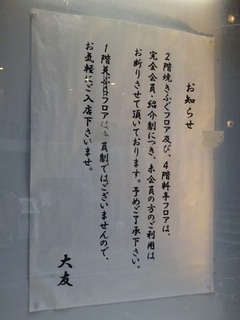 お知らせ
2階焼きふぐフロア及び、4階料亭フロアは、
完全会員・紹介制につき、未会員の方のご利用は
お断りさせて頂いております。予めご了承下さい。
1階 フロアは 会員制ではございませんので、
お気軽にご入店下さいませ。
大友